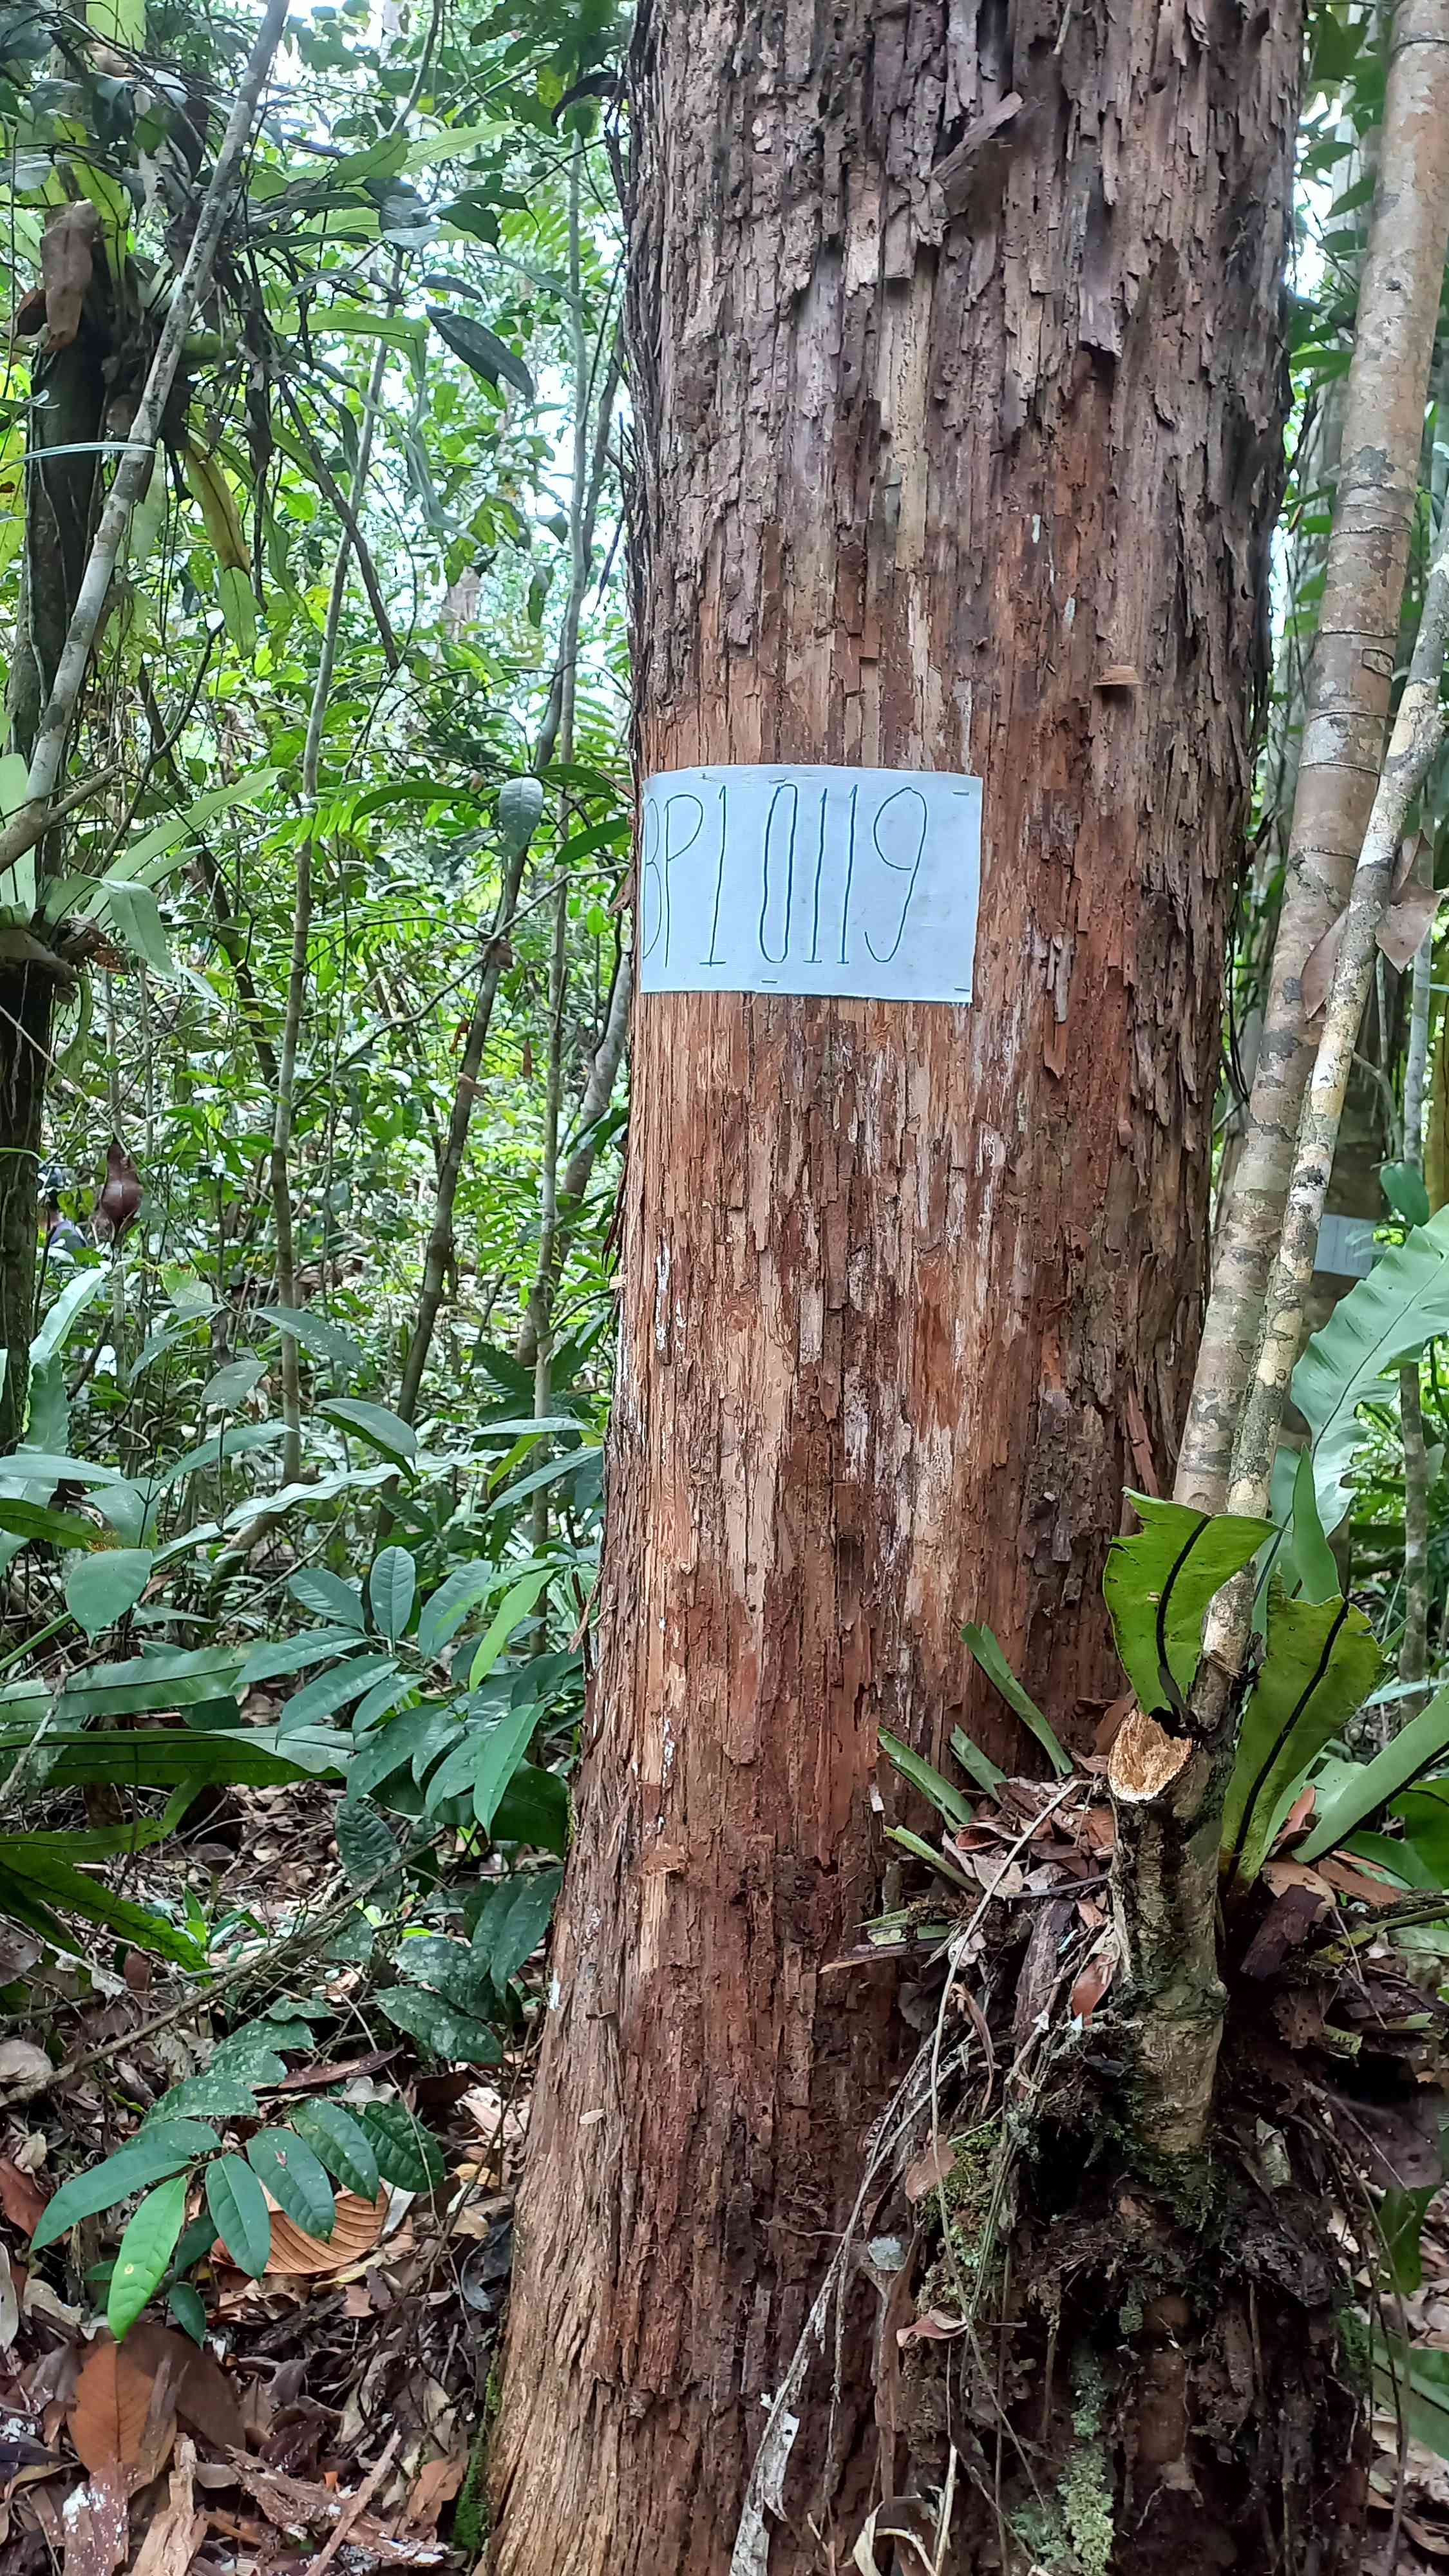 BP1 0119